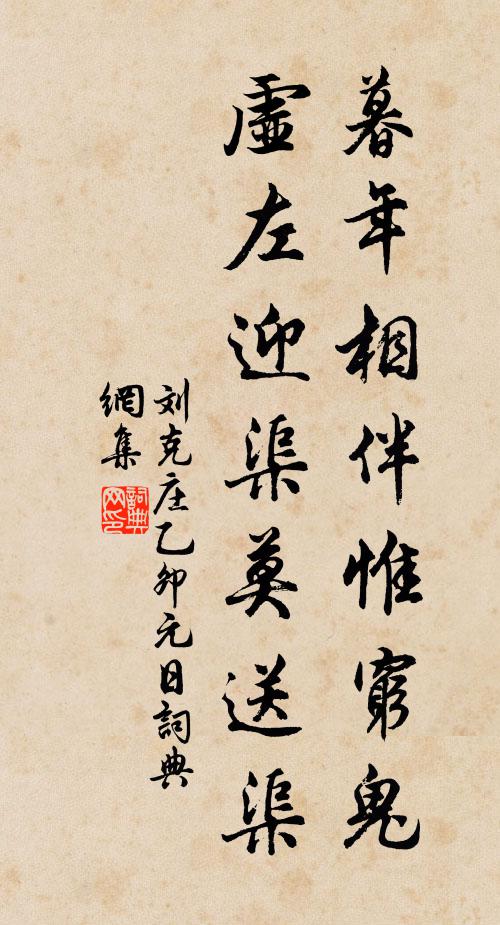 暮年相伴惟窮鬼
虛左迎渠莫送渠
刘克庄乙卯元日詞典
網集
詞典
网印